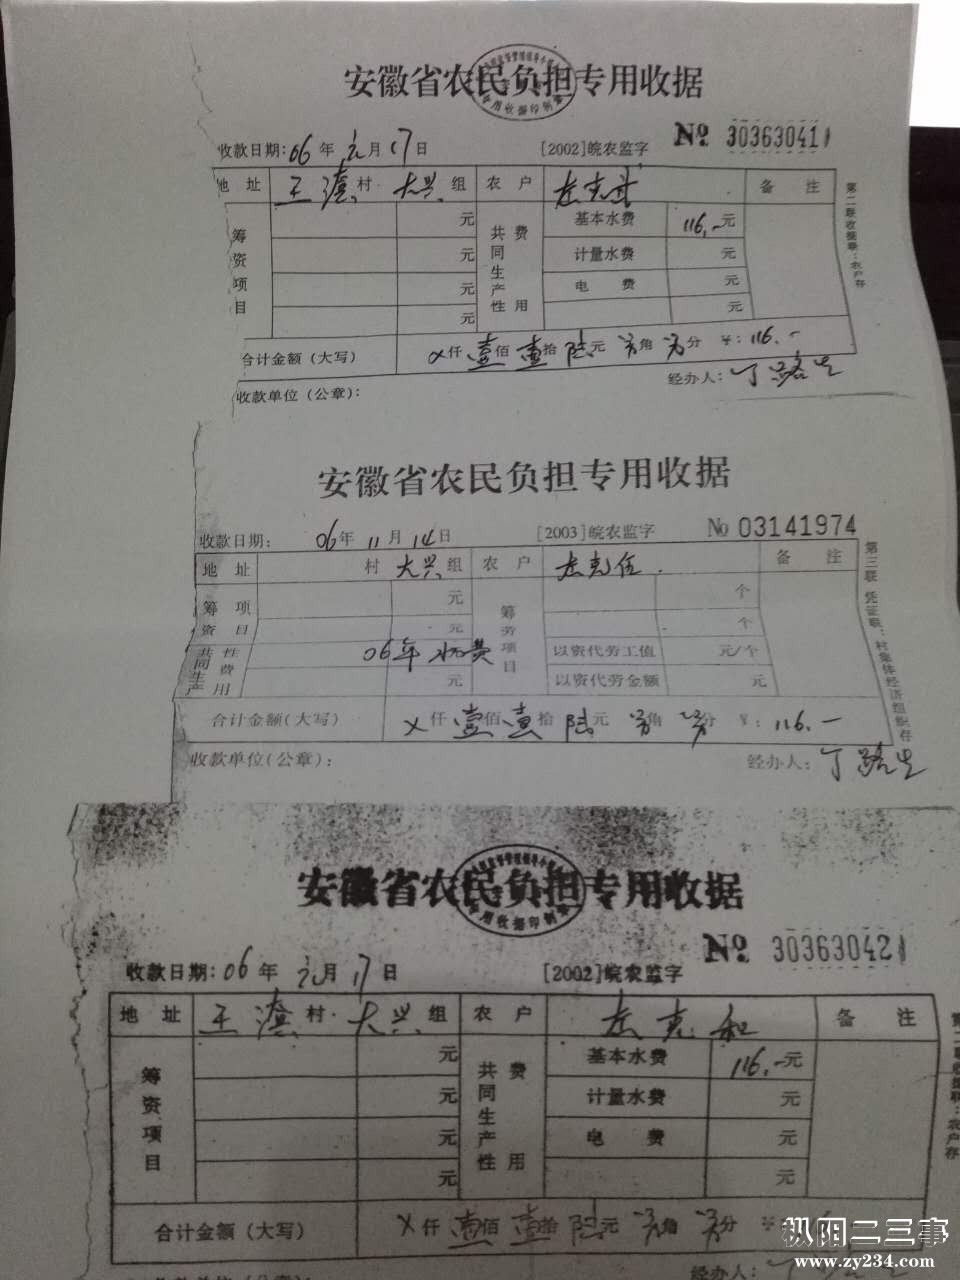 安徽省农民负担专用收据
收款日期:06年元月17日 [2002]皖农监字 № 303630411
地 址 王 村 大兴组 农 户 左克武 备 注
第二联收据联:农户存
筹资项目 元 共同生产性费用 基本水费 116.-元
元 计量水费 元
元 电 费 元
元 元
合计金额(大写) ×仟壹佰壹拾陆元 角 分 ¥:116.-
收款单位(公章): 经办人:丁路生
安徽省农民负担专用收据
收款日期: 06年11月14日 [2003]皖农监字 № 03141974
地 址 村 大兴组 农 户 左克伍 备 注
第三联 凭证联:村集体经济组织存
筹资项目 元 筹劳项目 个
元 个
共同生产性费用 06年水费 以资代劳工值 元/个
元 以资代劳金额 元
合计金额(大写) ×仟壹佰壹拾陆元 角 分 ¥:116.-
收款单位(公章): 经办人:丁路生
安徽省农民负担专用收据
收款日期:06年元月17日 [2002]皖农监字 № 303630421
地 址 王 村 大兴组 农 户 左克和 备 注
筹资项目 元 共同生产性费用 基本水费 116.-元
元 计量水费 元
元 电 费 元
元 元
合计金额(大写) ×仟壹佰壹拾陆元 角 分 ¥
经办人:丁
枞阳二三事
www.zy234.com